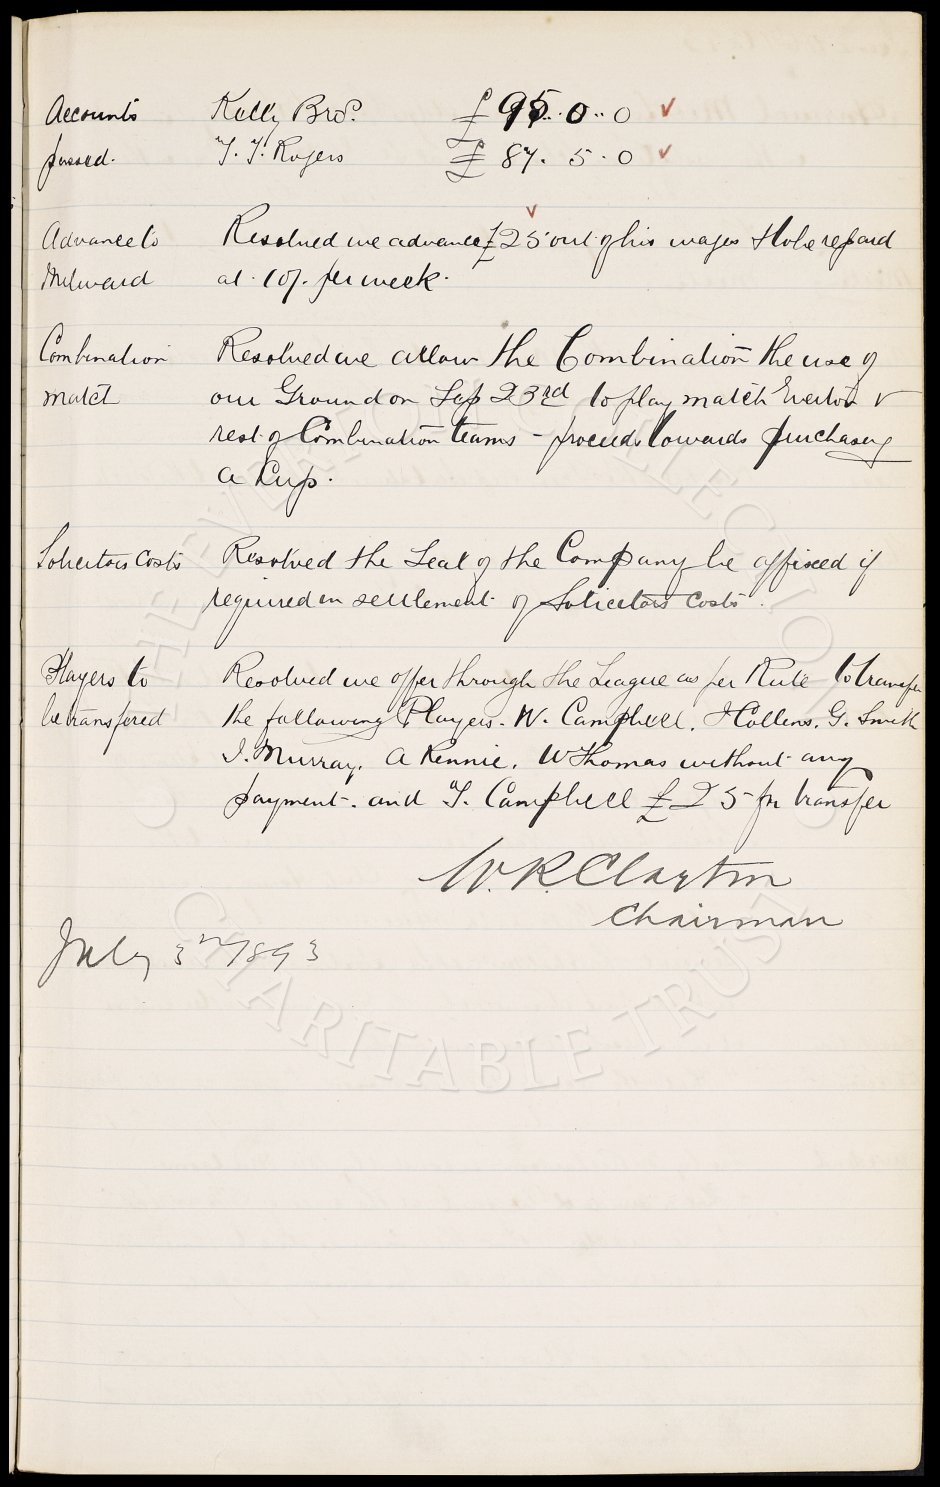 Accounts Kelly Bros. £95..0..0 ✓
passed. T. T. Rogers £ 87. 5. 0 ✓
Advance to Resolved we advance £25 out of his wages & to be repaid
Milward at 10/. per week.
Combination Resolved we allow the Combination the use of
match our Ground on Sep 23rd to play match Everton v
rest of Combination teams - proceeds towards purchasing
a Cup.
Solicitors Costs Resolved the Seal of the Company be affixed if
required in settlement of Solicitors Costs.
Players to Resolved we offer through the League as per Rule to transfer
be transfered the following Players. W. Campbell, J Collins, G. Smith
J. Murray, A Rennie, W Thomas without any
payment. and T. Campbell £25 for transfer
W. R. Clayton
Chairman
July 3rd/1893
THE EVERTON COLLECTION
CHARITABLE TRUST